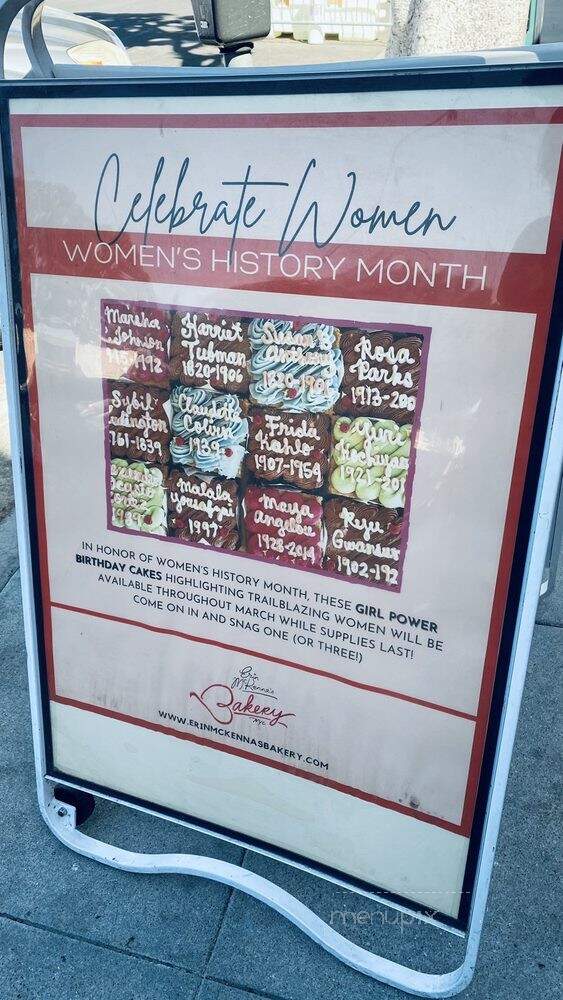 Celebrate Women
WOMEN'S HISTORY MONTH
Marsha
Johnson
1992
Harriet
Tubman
1820-1906
Susan B
Anthony
Rosa
Parks
1913-200
Sybil
1839
Claudette
Colvin
1939
Frida
Kahlo
1907-1954
1921-201
Malala
yousafzai
1997
Maya
Angelou
1928-2014
1902-192
IN HONOR OF WOMEN'S HISTORY MONTH, THESE GIRL POWER
BIRTHDAY CAKES HIGHLIGHTING TRAILBLAZING WOMEN WILL BE
AVAILABLE THROUGHOUT MARCH WHILE SUPPLIES LAST!
COME ON IN AND SNAG ONE (OR THREE!)
Erin
McKenna's
Bakery
NYC
WWW.ERINMCKENNASBAKERY.COM
menupix